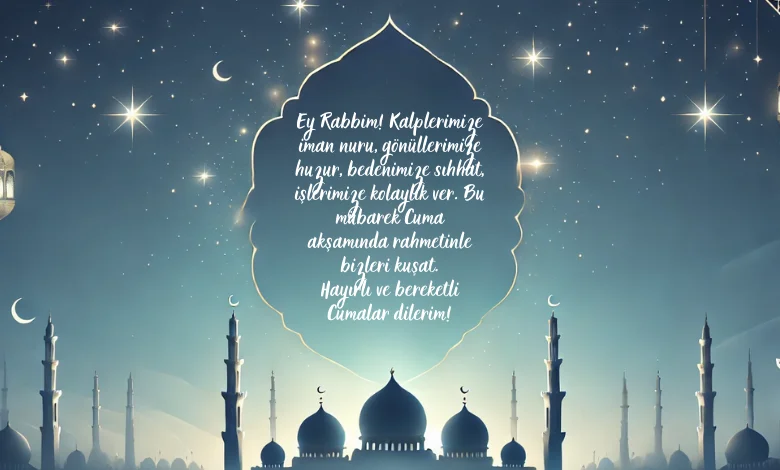 Ey Rabbim! Kalplerimize
iman nuru, gönüllerimize
huzur, bedenimize sıhhat,
işlerimize kolaylık ver. Bu
mübarek Cuma
akşamında rahmetinle
bizleri kuşat.
Hayırlı ve bereketli
Cumalar dilerim!